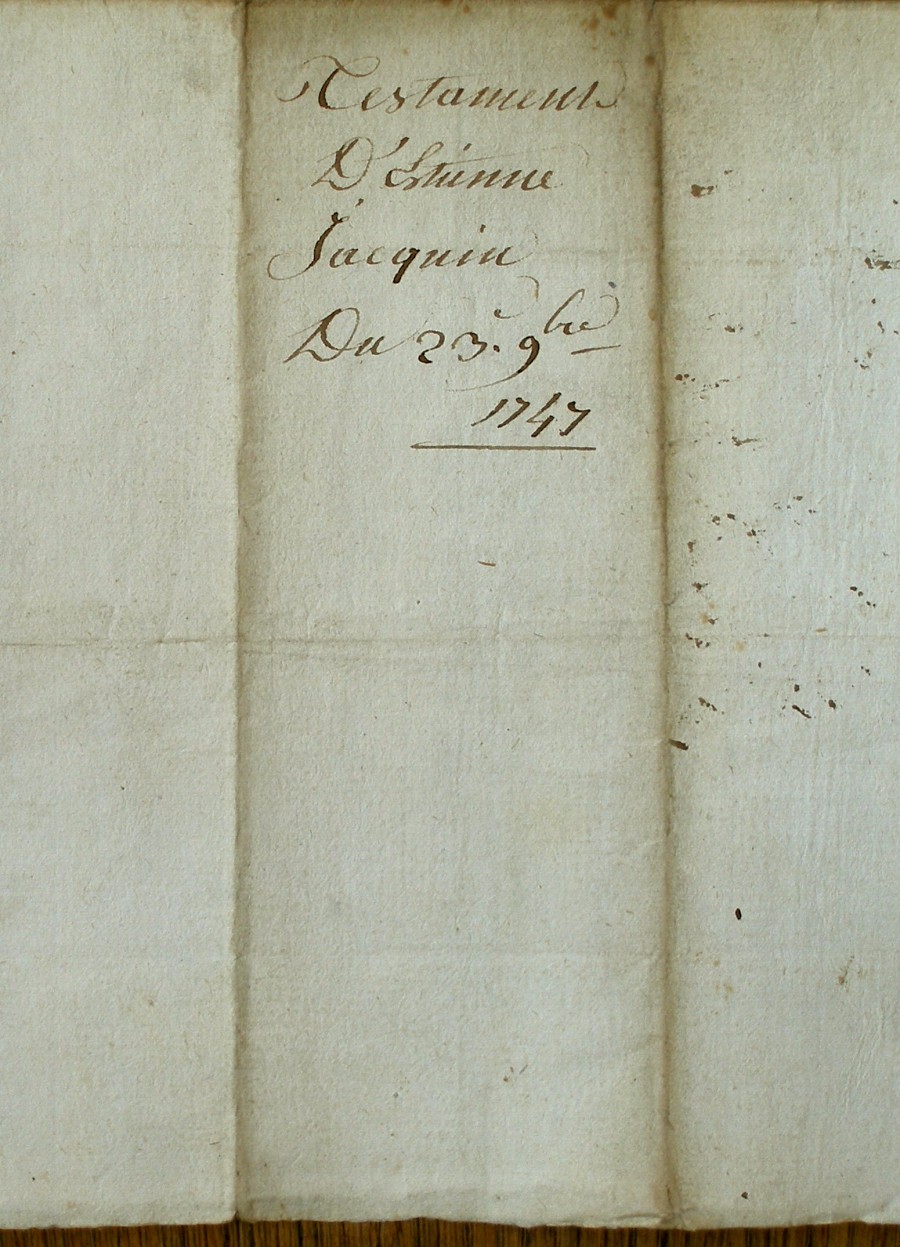 Testament
D'Estienne
Jacquin
Du 23.e 9bre
1747